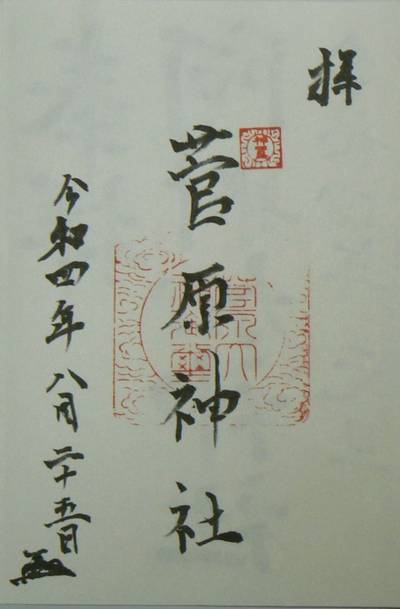 拝
菅原神社
令和四年八月二十五日